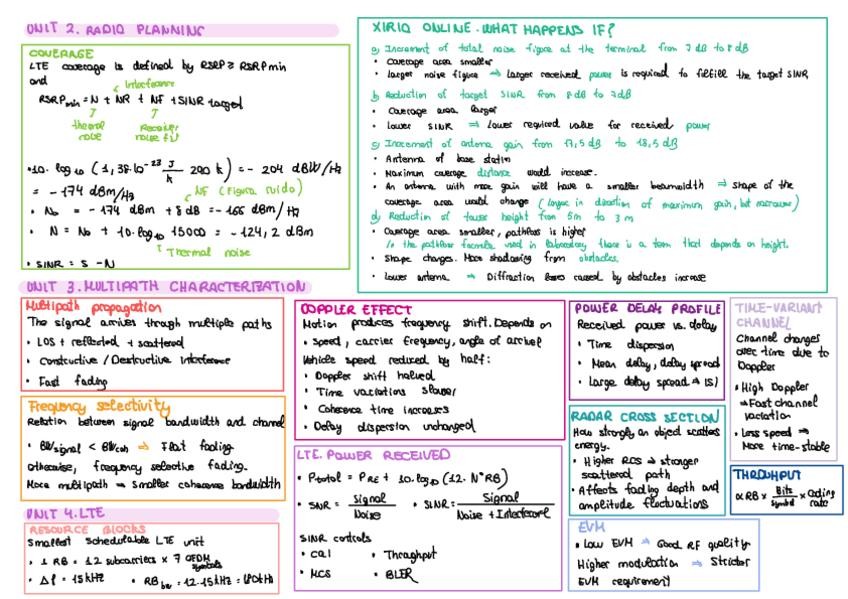 UNIT 2. RADIO PLANNING
COVERAGE
LTE coverage is defined by RSRP ≥ RSRPmin
and
Interference
RSRPmin = N + NR + NF + SINR target
thermal noise
Receiver noise fig
• 10. log10 (1,38·10^-23 J/K 290 K) = - 204 dBW/Hz
= - 174 dBm/Hz
NF (Figura ruido)
• No = - 174 dBm + 8 dB = -166 dBm/Hz
• N = No + 10·log10 15000 = - 124,2 dBm
Thermal noise
• SINR = S - N
XIRIO ONLINE. WHAT HAPPENS IF?
a) Increment of total noise figure at the terminal from 7 dB to 8 dB
• Coverage area smaller
• Larger noise figure ⇒ Larger received power is required to fulfill the target SINR
b) Reduction of target SINR from 8 dB to 7dB
• Coverage area larger
• Lower SINR ⇒ Lower required value for received power
c) Increment of antenna gain from 17,5 dB to 18,5 dB
• Antenna of base station
• Maximum coverage distance would increase.
• An antenna with more gain will have a smaller beamwidth ⇒ shape of the
coverage area would change (longer in direction of maximum gain, but narrower)
d) Reduction of tower height from 5m to 3 m
• Coverage area smaller, pathloss is higher
In the pathloss formula used in laboratory there is a term that depends on height.
• Shape changes. More shadowing from obstacles.
• Lower antenna ⇒ Diffraction losses caused by obstacles increase
UNIT 3. MULTIPATH CHARACTERIZATION
Multipath propagation
The signal arrives through multiple paths
• LOS + reflected + scattered
• Constructive / Destructive Interference
• Fast fading
Frequency selectivity
Relation between signal bandwidth and channel
• BWsignal < BWcoh ⇒ Flat fading.
otherwise, frequency selective fading.
More multipath ⇒ Smaller coherence bandwidth
UNIT 4. LTE
RESOURCE BLOCKS
Smallest schedulable LTE unit
• 1 RB = 12 subcarriers × 7 OFDM symbols
• Δf = 15 kHz • RBbw = 12·15kHz = 180kHz
DOPPLER EFFECT
Motion produces frequency shift. Depends on
• speed, carrier frequency, angle of arrival
Vehicle speed reduced by half:
• Doppler shift halved
• Time variations slower
• Coherence time increases
• Delay dispersion unchanged
LTE. POWER RECEIVED
• Ptotal = PRE + 10·log10 (12· NºRB)
• SNR = Signal / Noise • SINR = Signal / Noise + Interference
SINR controls
• CQI • Throughput
• MCS • BLER
POWER DELAY PROFILE
Received power vs. delay
• Time dispersion
• Mean delay, delay spread
• Large delay spread → ISI
RADAR CROSS SECTION
How strongly an object scatters
energy.
• Higher RCS → stronger
scattered path
• Affects fading depth and
amplitude fluctuations
EVM
• Low EVM ⇒ Good RF quality
Higher modulation ⇒ Stricter
EVM requirement
TIME-VARIANT
CHANNEL
Channel changes
over time due to
Doppler
• High Doppler
→ Fast channel
variation
• Less speed ⇒
More time-stable
THROUGHPUT
∝ RB × Bits/symbol × Coding rate